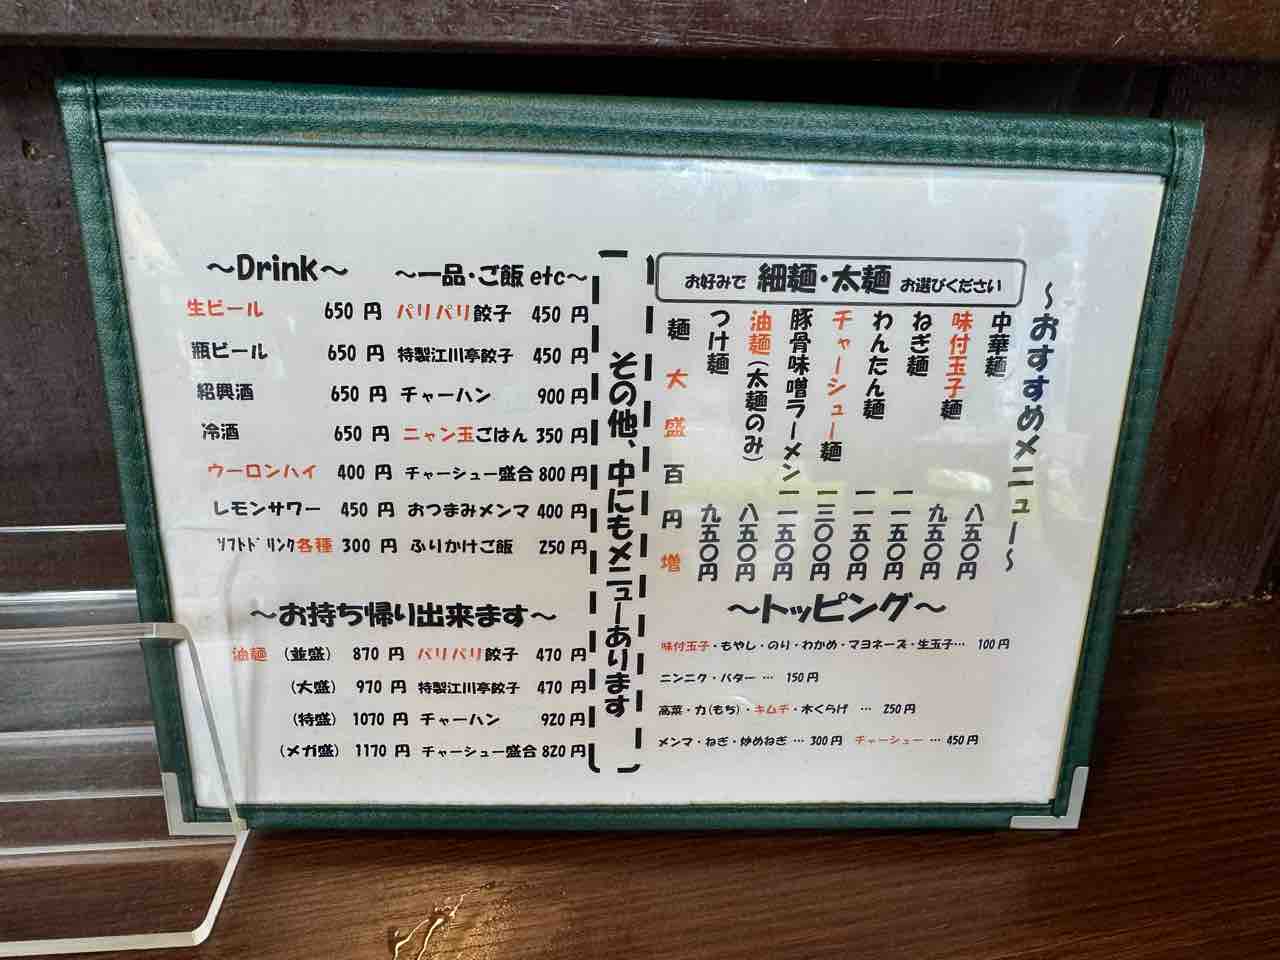 ～おすすめメニュー～
お好みで 細麺・太麺 お選びください
中華麺 八五〇円
味付玉子麺 九五〇円
ねぎ麺 一一五〇円
わんたん麺 一一五〇円
チャーシュー麺 一三〇〇円
豚骨味噌ラーメン 一一五〇円
油麺(太麺のみ) 八五〇円
つけ麺 九五〇円
麺大盛百円増
～トッピング～
味付玉子・もやし・のり・わかめ・マヨネーズ・生玉子… 100円
ニンニク・バター … 150円
高菜・力(もち)・キムチ・木くらげ … 250円
メンマ・ねぎ・炒めねぎ … 300円 チャーシュー … 450円
その他、中にもメニューあります
～Drink～
生ビール 650円
瓶ビール 650円
紹興酒 650円
冷酒 650円
ウーロンハイ 400円
レモンサワー 450円
ｿﾌﾄﾄﾞﾘﾝｸ各種 300円
～一品・ご飯 etc～
パリパリ餃子 450円
特製江川亭餃子 450円
チャーハン 900円
ニャン玉ごはん 350円
チャーシュー盛合 800円
おつまみメンマ 400円
ふりかけご飯 250円
～お持ち帰り出来ます～
油麺 (並盛) 870円 パリパリ餃子 470円
(大盛) 970円 特製江川亭餃子 470円
(特盛) 1070円 チャーハン 920円
(メガ盛) 1170円 チャーシュー盛合 820円